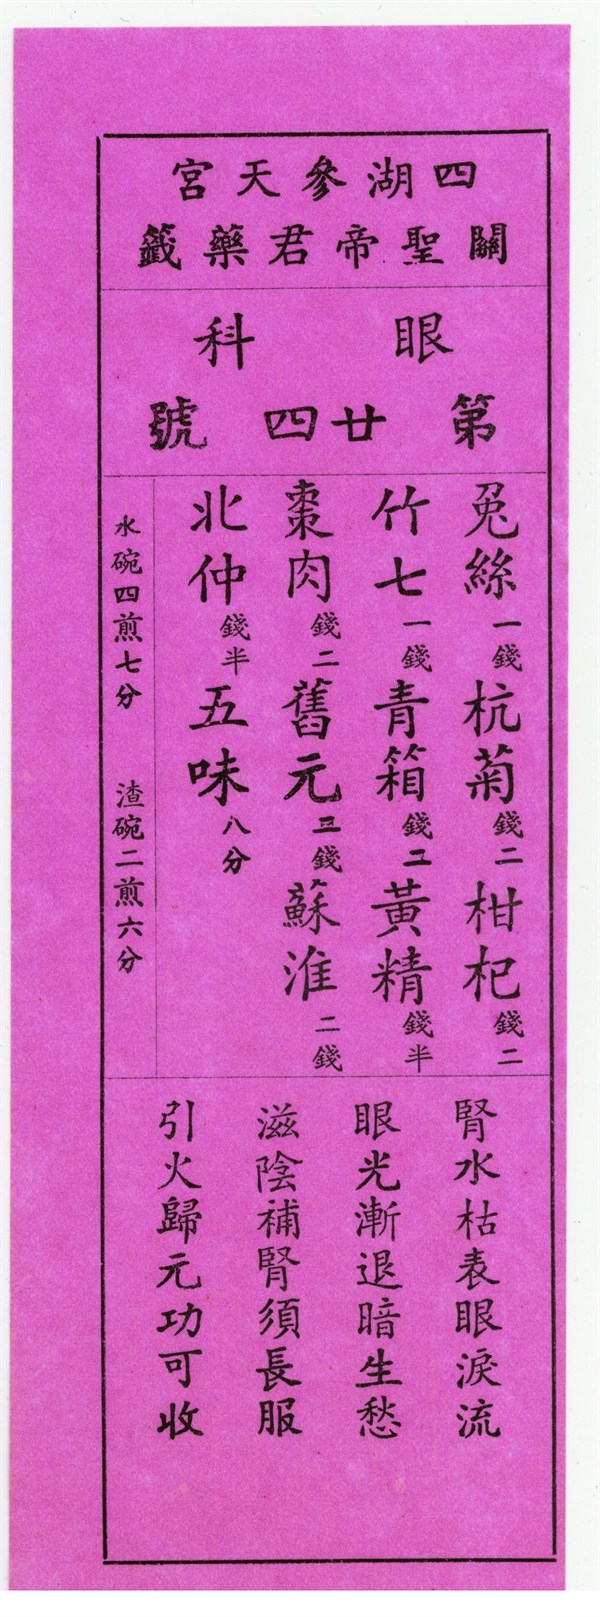 四湖參天宮
關聖帝君藥籤
眼科
第廿四號
兎絲一錢杭菊錢二柑杞錢二
竹七一錢青箱錢二黃精錢半
棗肉錢二舊元三錢蘇淮二錢
北仲錢半五味八分
水碗四煎七分 渣碗二煎六分
腎水枯表眼淚流
眼光漸退暗生愁
滋陰補腎須長服
引火歸元功可收